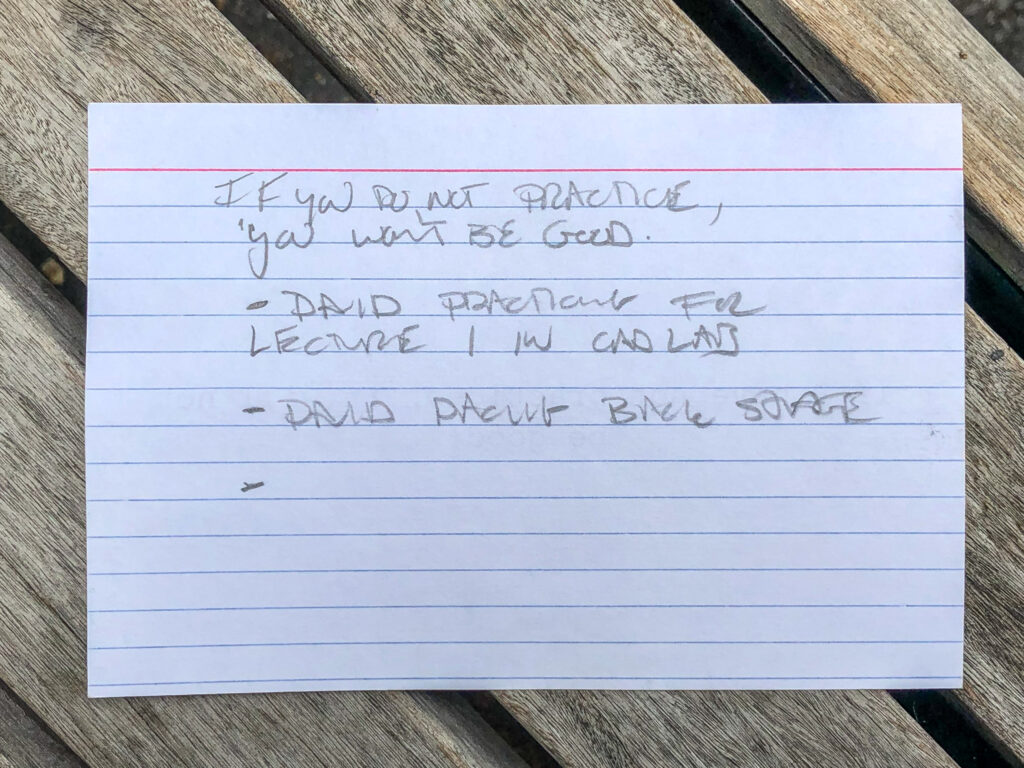 IF YOU DO NOT PRACTICE,
YOU WON'T BE GOOD.
- DAVID PRACTICING FOR
LECTURE 1 IN CAD LAB
- DAVID PACING BACK STAGE
-